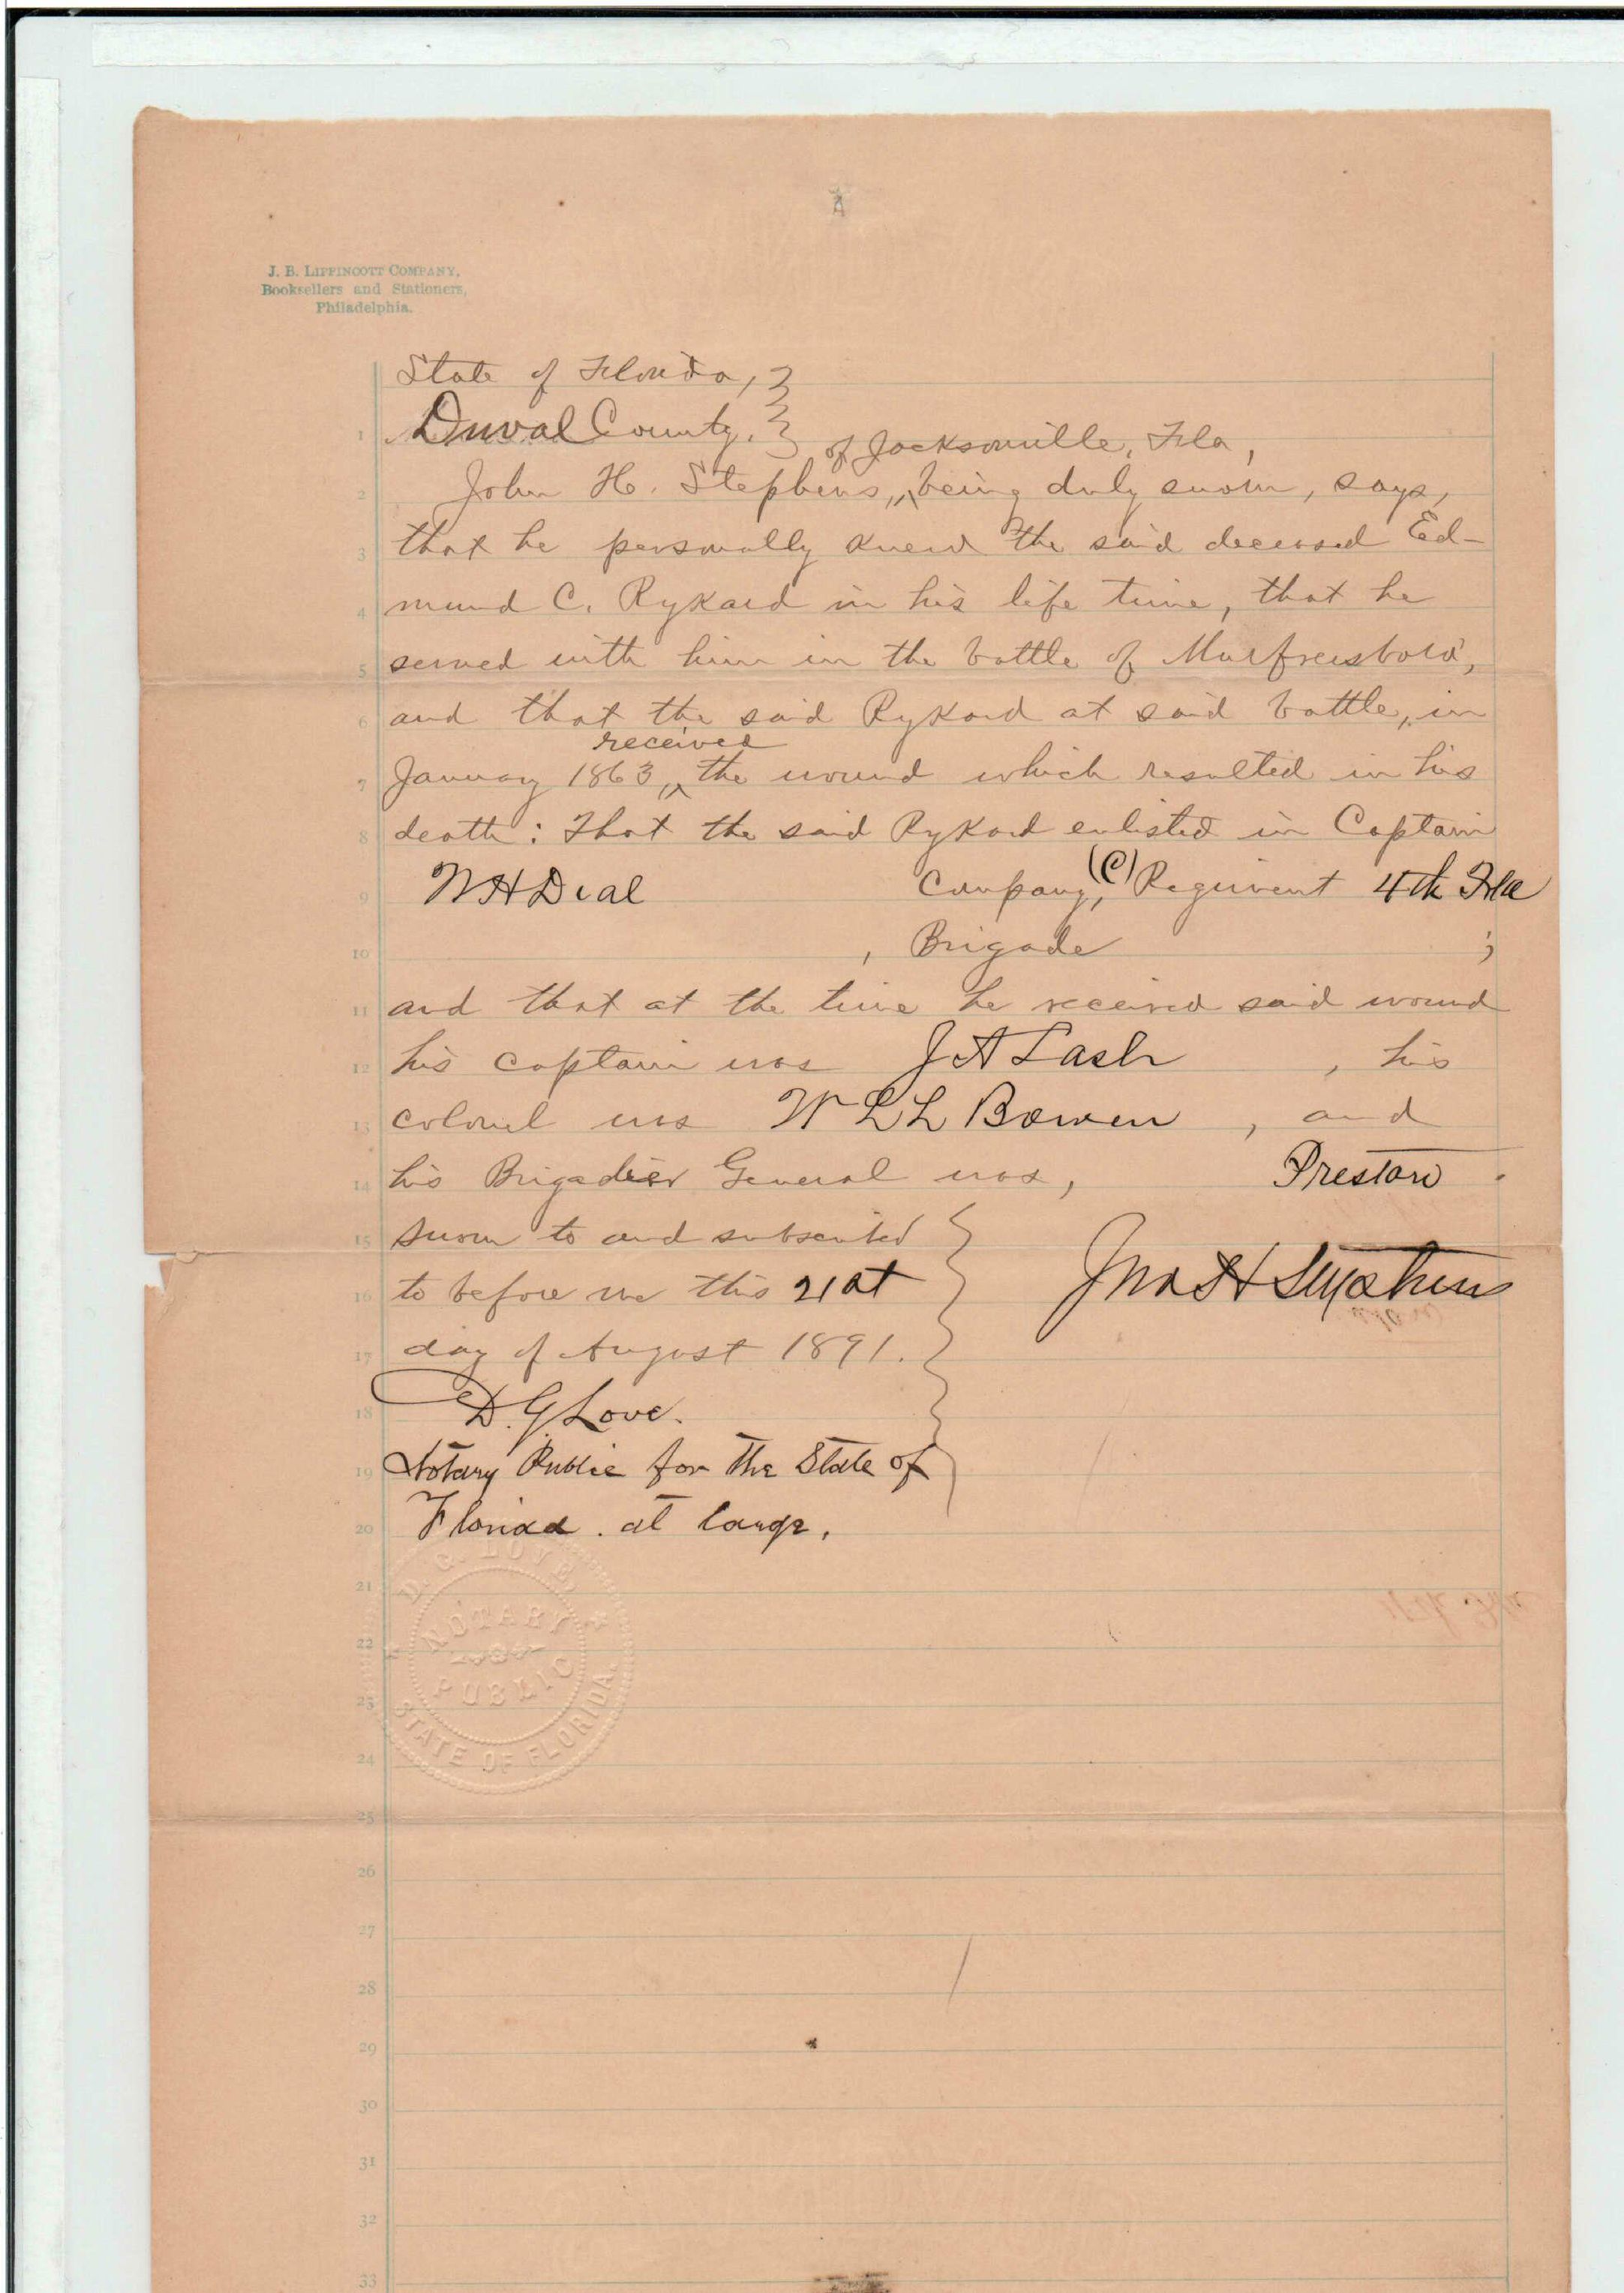 J. B. LIPPINCOTT COMPANY,
Booksellers and Stationers,
Philadelphia.
State of Florida, }
1 Duval County. } of Jacksonville, Fla,
2 John H. Stephens, ^ being duly sworn, says,
3 that he personally knew the said deceased Ed-
4 mund C. Rykard in his life time, that he
5 served with him in the battle of Murfreesboro',
6 and that the said Rykard at said battle, in
received
7 January 1863, ^ the wound which resulted in his
8 death: That the said Rykard enlisted in Captain
9 W H Dial Company, (C) Regiment 4th Fla
10 , Brigade ;
11 and that at the time he received said wound
12 his captain was J A Lash , his
13 colonel was W L L Bowen , and
14 his Brigadier General was, Preston .
15 Sworn to and subscribed
16 to before me this 21st Jno H Stephens
17 day of August 1891.
18 D. G. Love.
19 Notary Public for the State of
20 Florida. at large.
21
D. G. LOVE,
NOTARY
22
PUBLIC
23
STATE OF FLORIDA.
24
25
26
27
28
29
30
31
32
33